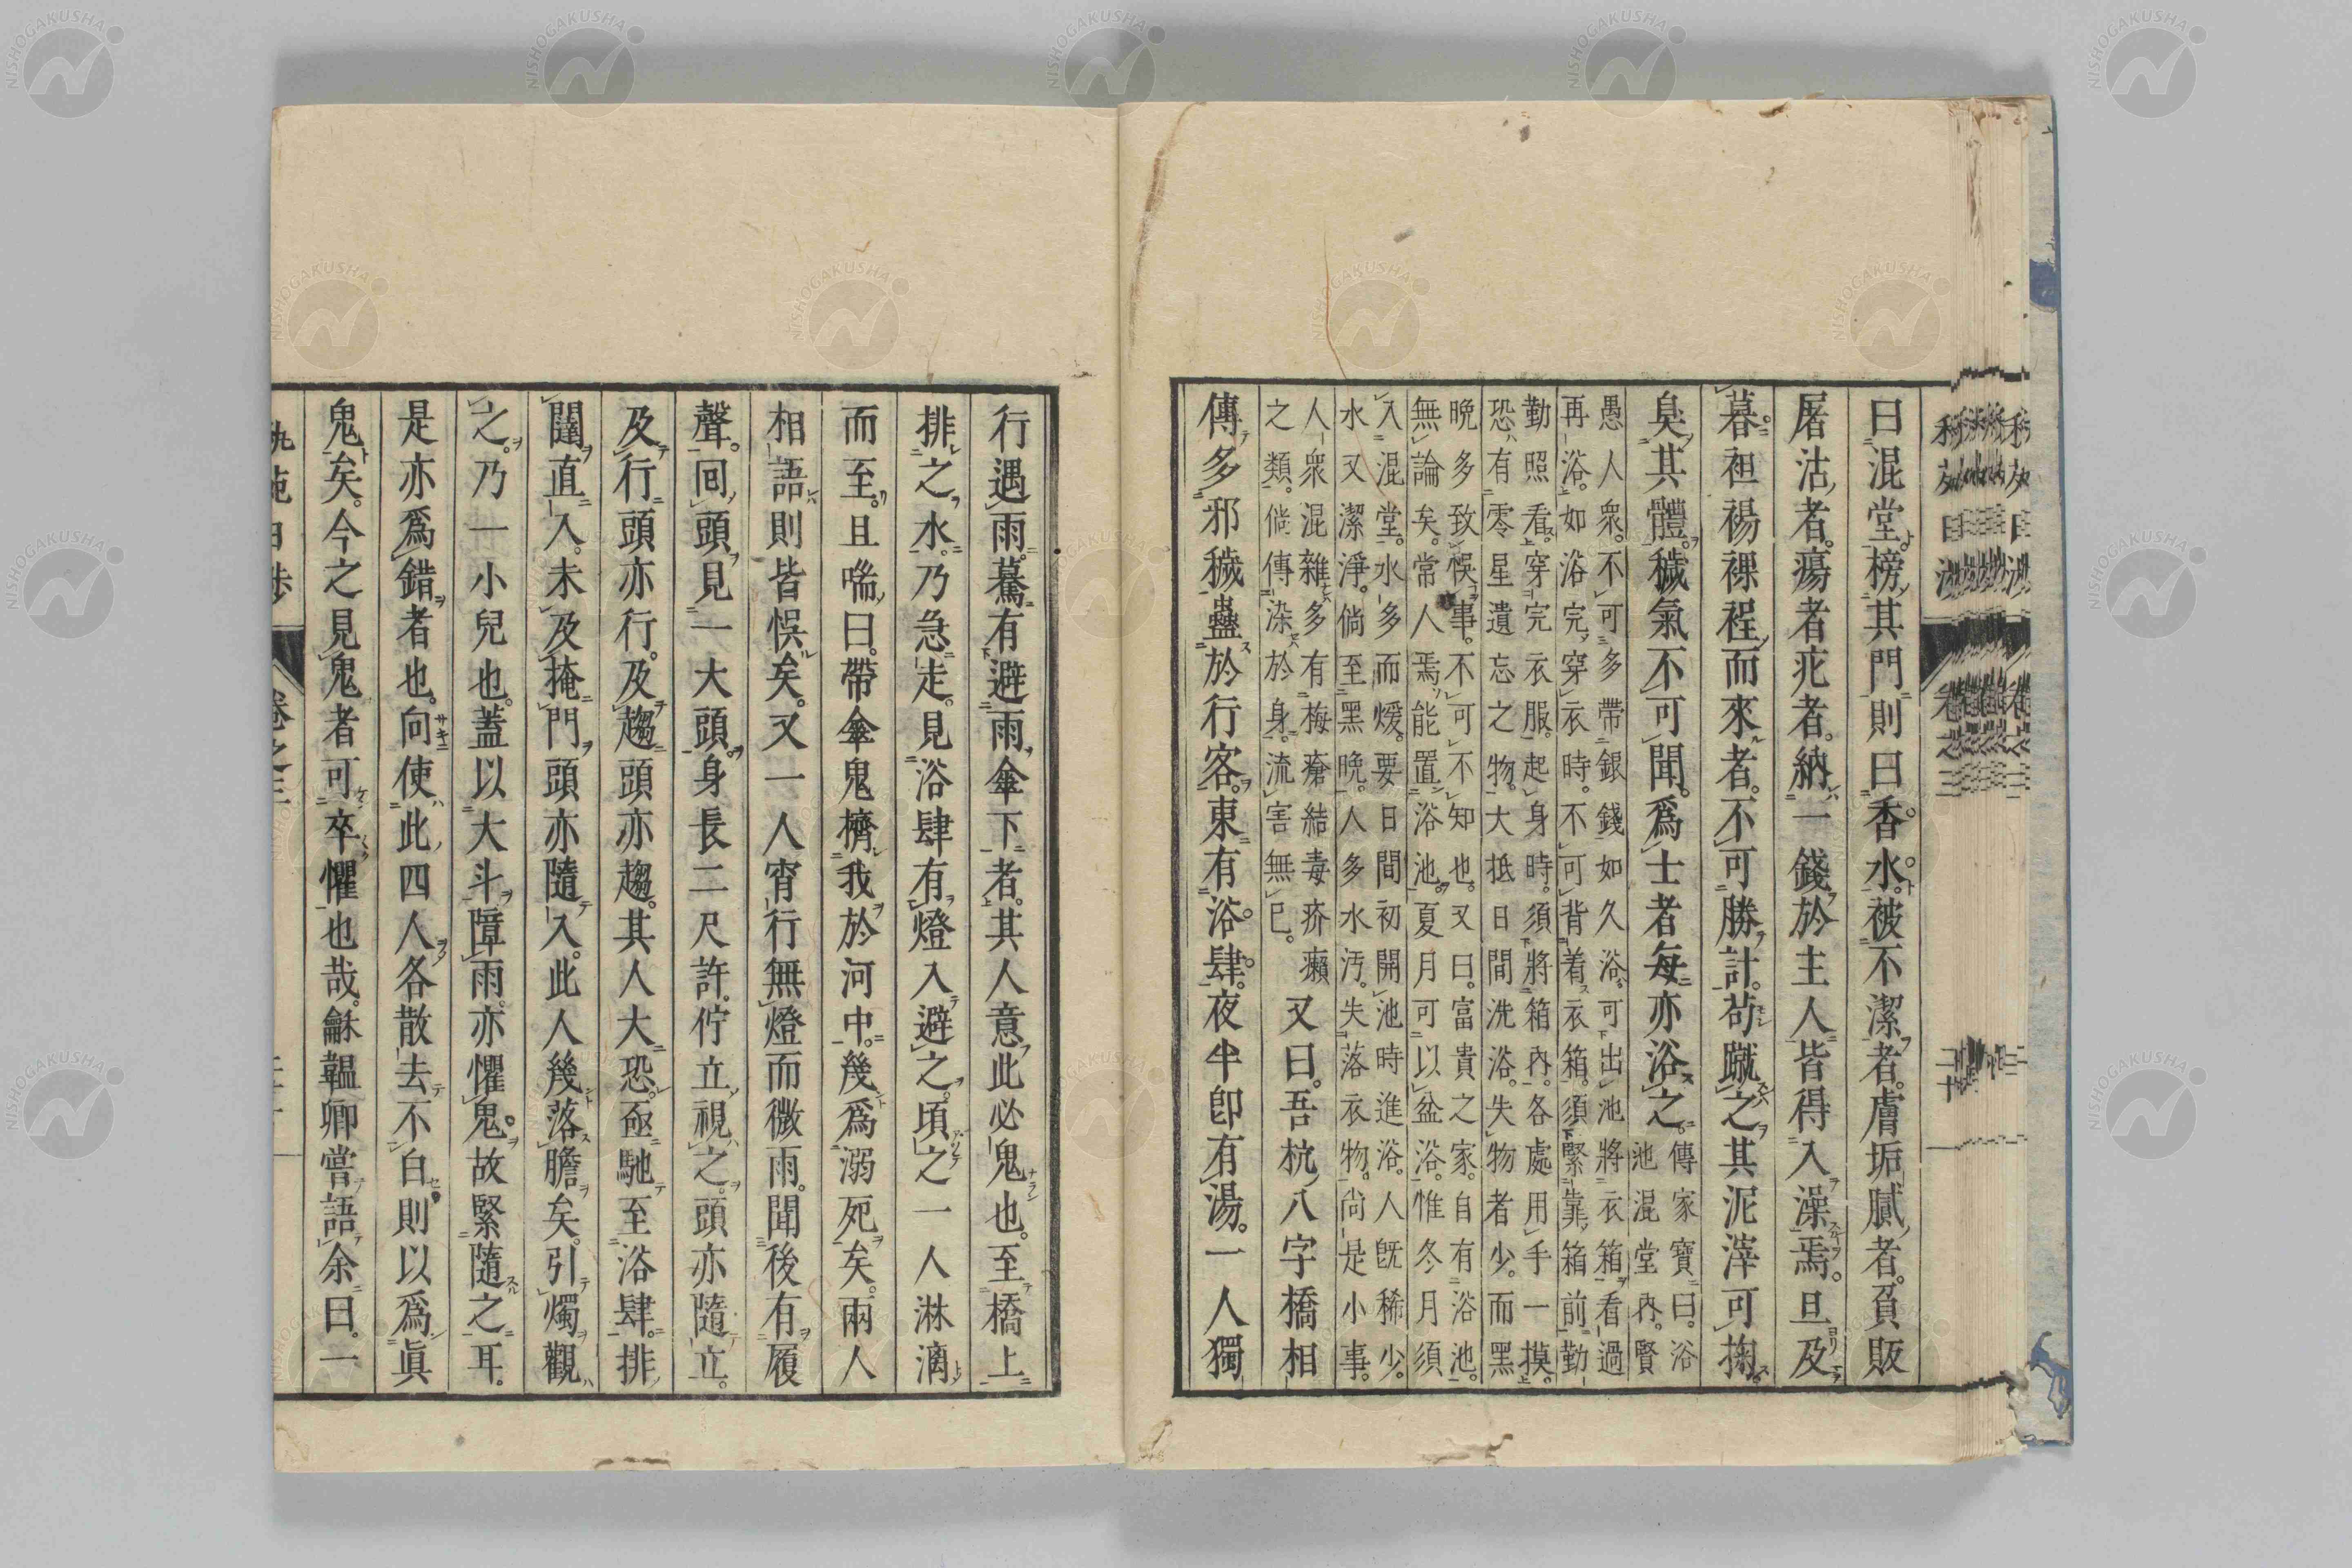 曰混堂。榜其門則曰香水。被不潔者。膚垢膩者。負販
屠沽者。瘍者疕者。納一錢於主人皆得入澡焉。旦及
暮。袒裼裸裎而來者。不可勝計。苟蹴之其泥滓可掬。
臭其體。穢氣不可聞。爲士者每亦浴之。
傳家寶曰。浴
池混堂內。賢
愚人衆。不可多帶銀錢如久浴。可出池將衣箱看過
再浴。如浴完穿衣時。不可背着衣箱。須緊靠箱前勤
勤照看。穿完衣服。起身時。須將箱內。各處用手一摸。
恐有零星遺忘之物。大抵日間洗浴。失物者少。而黑
晩多致悞事。不可不知也。又曰。富貴之家。自有浴池。
無論矣。常人焉能置浴池。夏月可以盆浴。惟冬月須
入混堂。水多而煖。要日間初開池時進浴。人旣稀少。
水又潔淨。倘至黑晩。人多水汚。失落衣物。尙是小事。
人衆混雜多有梅瘡結毒疥癩
之類。倘傳染於身。流害無已。
又曰。吾杭八字橋相
傳多邪穢蠱於行客。東有浴肆。夜半卽有湯。一人獨
行遇雨。驀有避雨傘下者。其人意此必鬼也。至橋上
排之水。乃急走。見浴肆有燈入避之。頃之一人淋漓
而至。且喘曰。帶傘鬼擠我於河中。幾爲溺死矣。兩人
相語則皆悞矣。又一人宵行無燈而微雨。聞後有履
聲。回頭見一大頭。身長二尺許。佇立視之。頭亦隨立。
及行頭亦行。及趨頭亦趨。其人大恐。亟馳至浴肆。排
闥直入。未及掩門頭亦隨入。此人幾落膽矣。引燭觀
之。乃一小兒也。蓋以大斗障雨。亦懼鬼。故緊隨之耳。
是亦爲錯者也。向使此四人各散去不白則以爲眞
鬼矣。今之見鬼者可卒懼也哉。龢韞卿嘗語余曰。一